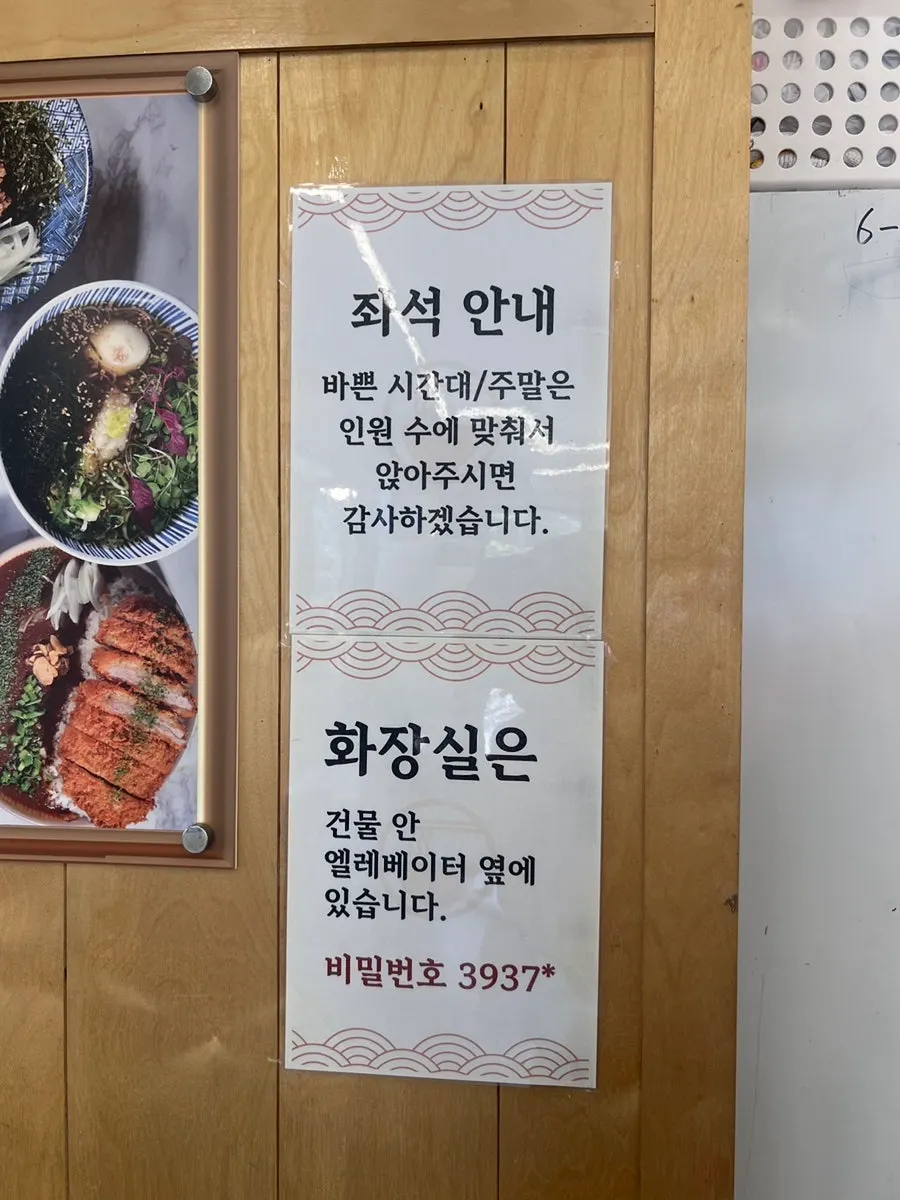 좌석 안내
바쁜 시간대/주말은
인원 수에 맞춰서
앉아주시면
감사하겠습니다.
화장실은
건물 안
엘레베이터 옆에
있습니다.
비밀번호 3937*
6-